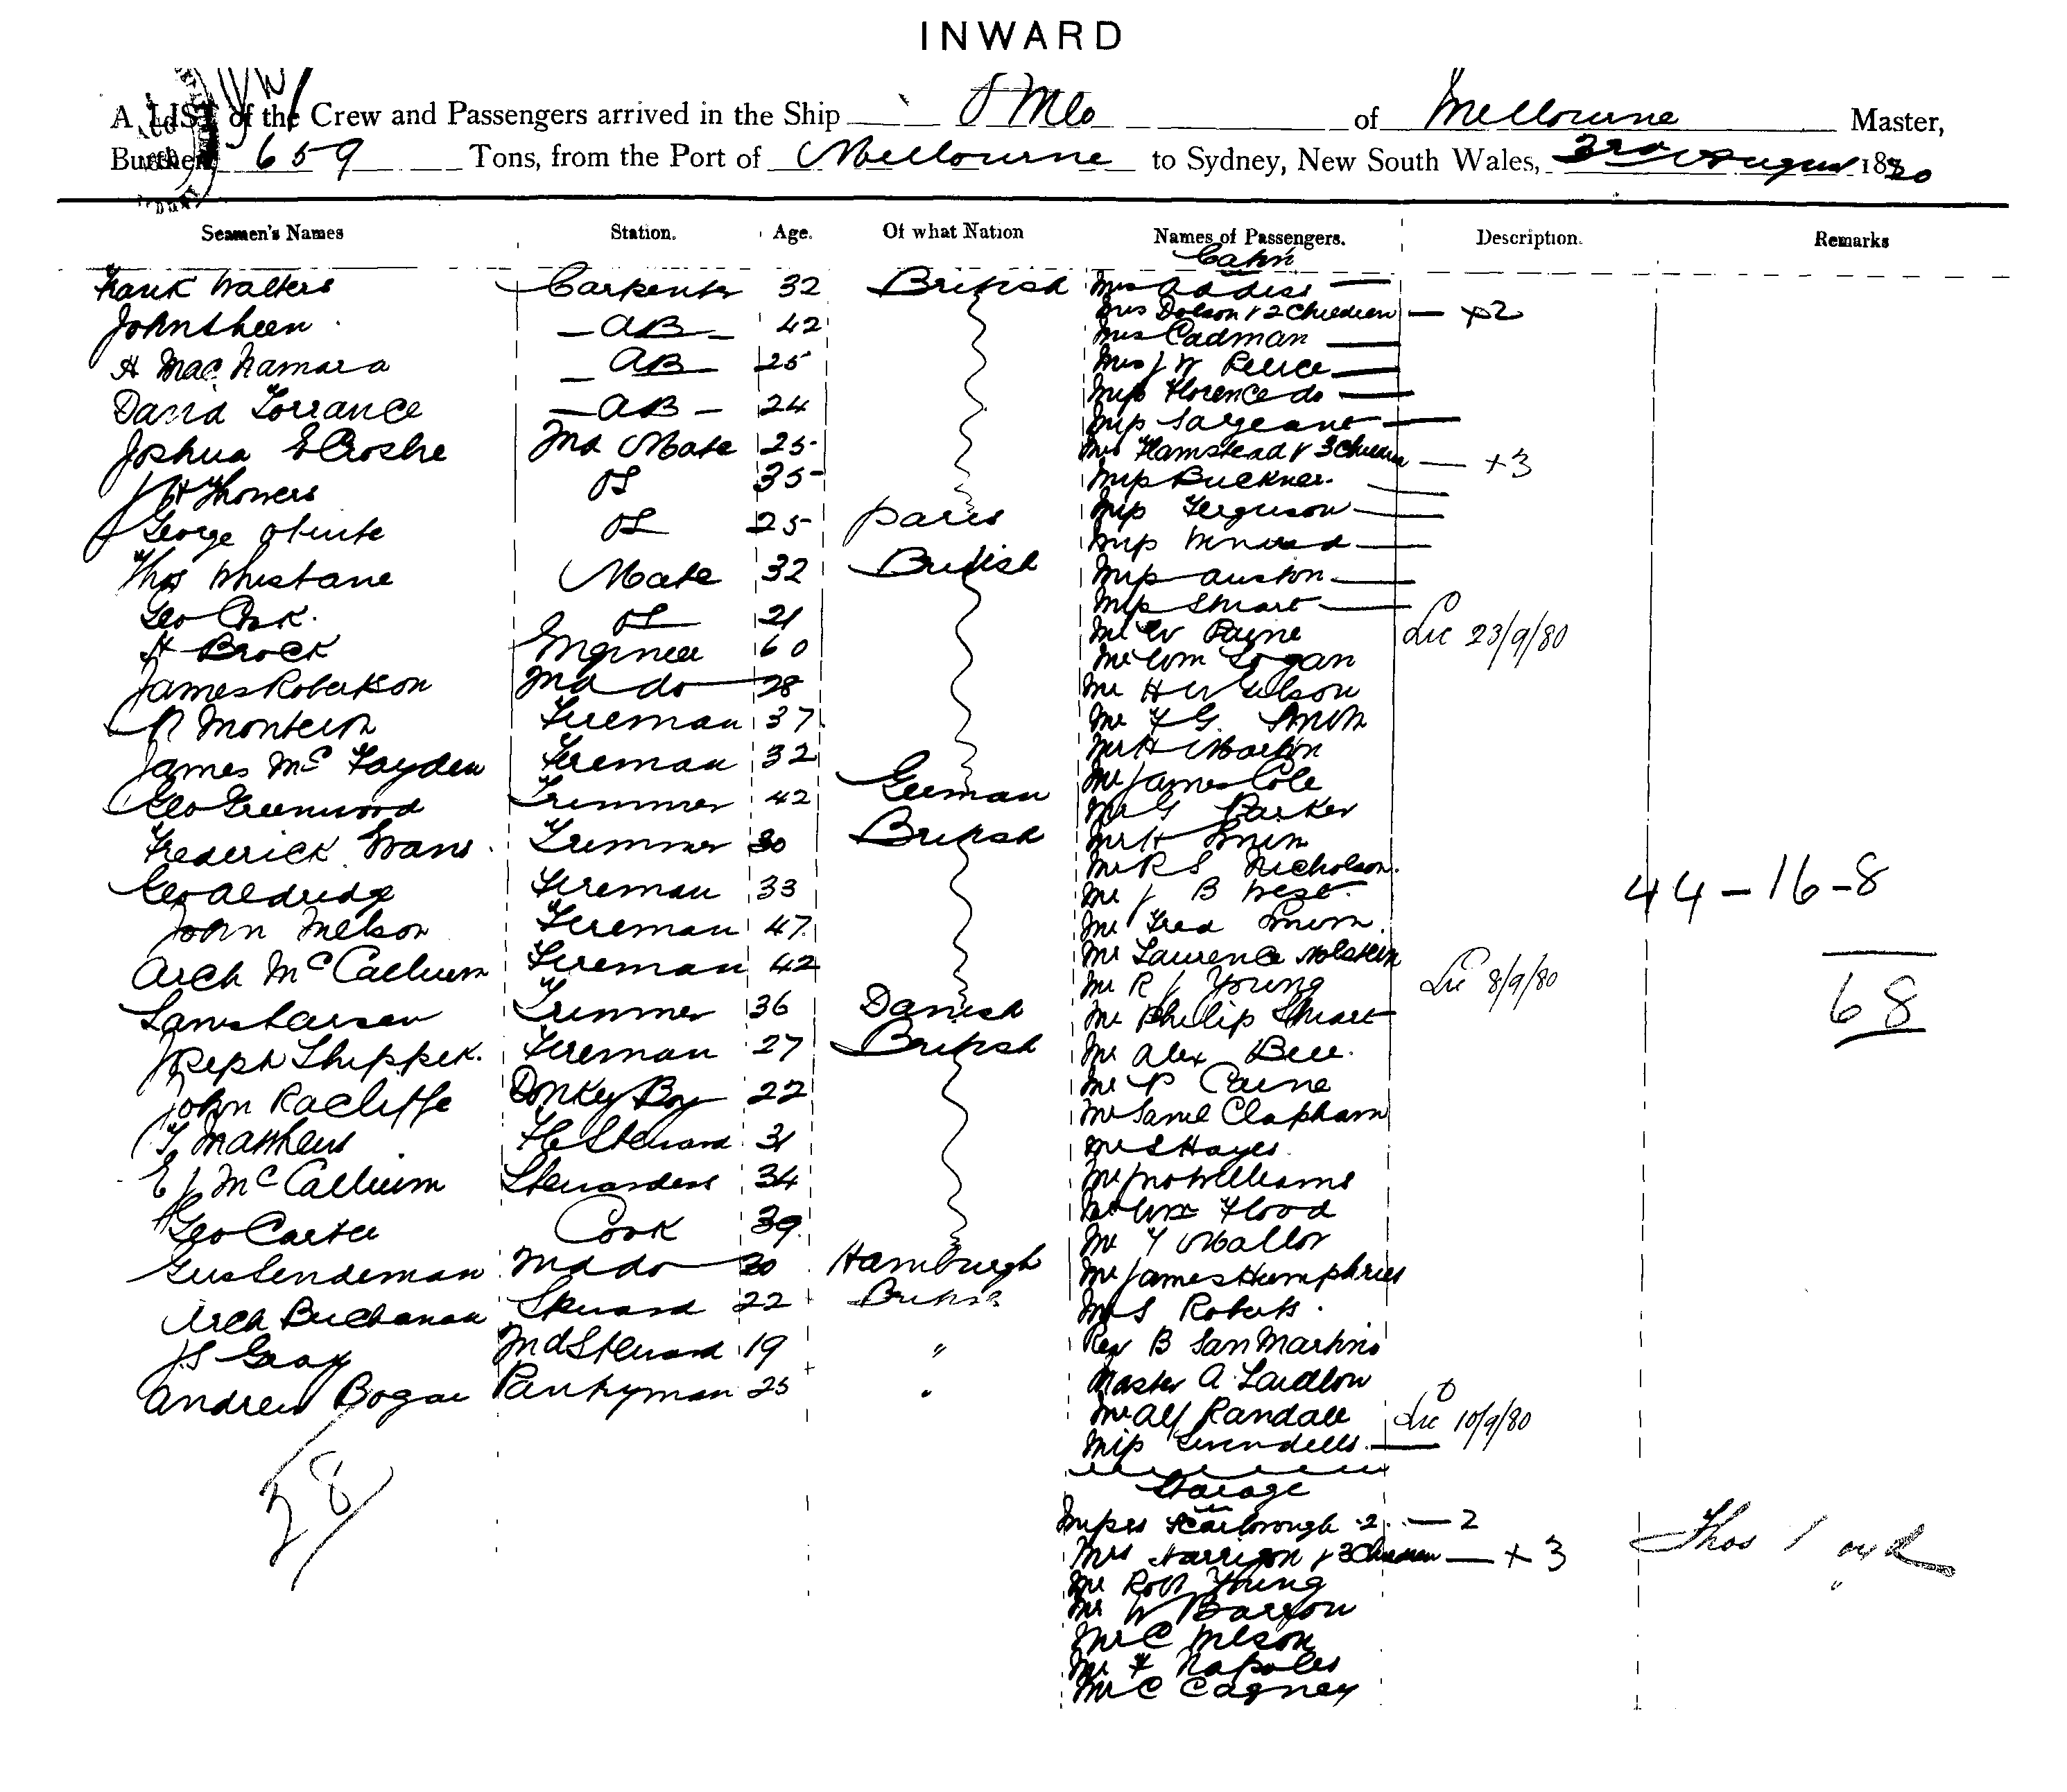 INWARD
A LIST of the Crew and Passengers arrived in the Ship of Melbourne Master,
Burthen 659 Tons, from the Port of Melbourne to Sydney, New South Wales, 3rd August 1880
Seamen's Names Station. Age. Of what Nation Names of Passengers. Description. Remarks
Cabin
Frank Walters Carpenter 32 British Mrs Addiss
Mrs Dobson & 2 Children — +2
John Sheen AB 42 Mrs Cadman
H MacNamara AB 25 Mrs J W Peirce
David Torrance AB 24 Miss Florence do
Miss Sargeant
Joshua E Crosbie 2nd Mate 25 Mrs Hamstead & 3 Children — +3
J H Thowers OS 35 Miss Buckner
George White OS 25 Paris Miss Ferguson
Miss
Thos Whistane Mate 32 British Miss Austin
Geo Cook OS 21 Miss Stuart
H Brock Engineer 60 Mr W Payne Lic 23/9/80
Mr Wm Logan
James Robertson 2nd do 28 Mr H W Gibson
R Monteith Fireman 37 Mr F G. Smith
James McFayden Fireman 32 Mr H Martin
Mr James Cole
Geo Greenwood Trimmer 42 German Mr G Parker
Frederick Evans Trimmer 30 British Mr H Smith
Mr R S Nicholson
Geo Aldridge Fireman 33 Mr J B West 44-16-8
John Nelson Fireman 47 Mr Fred Smith
Arch McCallum Fireman 42 Mr Laurence Holstein
Mr R J Young Lic 8/9/80
Larsen Trimmer 36 Danish Mr Philip Stuart 68
Joseph Shippek Fireman 27 British Mr Alex Bell
John Racliffe Donkey Boy 22 Mr P Caine
Mr Saml Clapham
T Matthews FC Steward 31 Mr S Hayes
E J McCallum Stewardess 34 Mr Jno Williams
Geo Carter Cook 39 Mr Wm Flood
Mr T Mallor
Gus Lendeman 2nd do 30 Hamburgh Mr James Humphries
Arch Buchanan Steward 22 British Mr S Roberts
J S Gray 2nd Steward 19 " Rev B San Martino
Andrew Bogue Pantryman 25 " Master A. Laidlow
Mr Alf Randall Lic 10/9/80
28 Miss
Steerage
Misses Scarborough 2 — 2
Mrs Harrison & 3 Children — +3 Thos
Mr Robt Young
Mr W Barron
Mr C Nelson
Mr F Napoles
Mr C Cagney